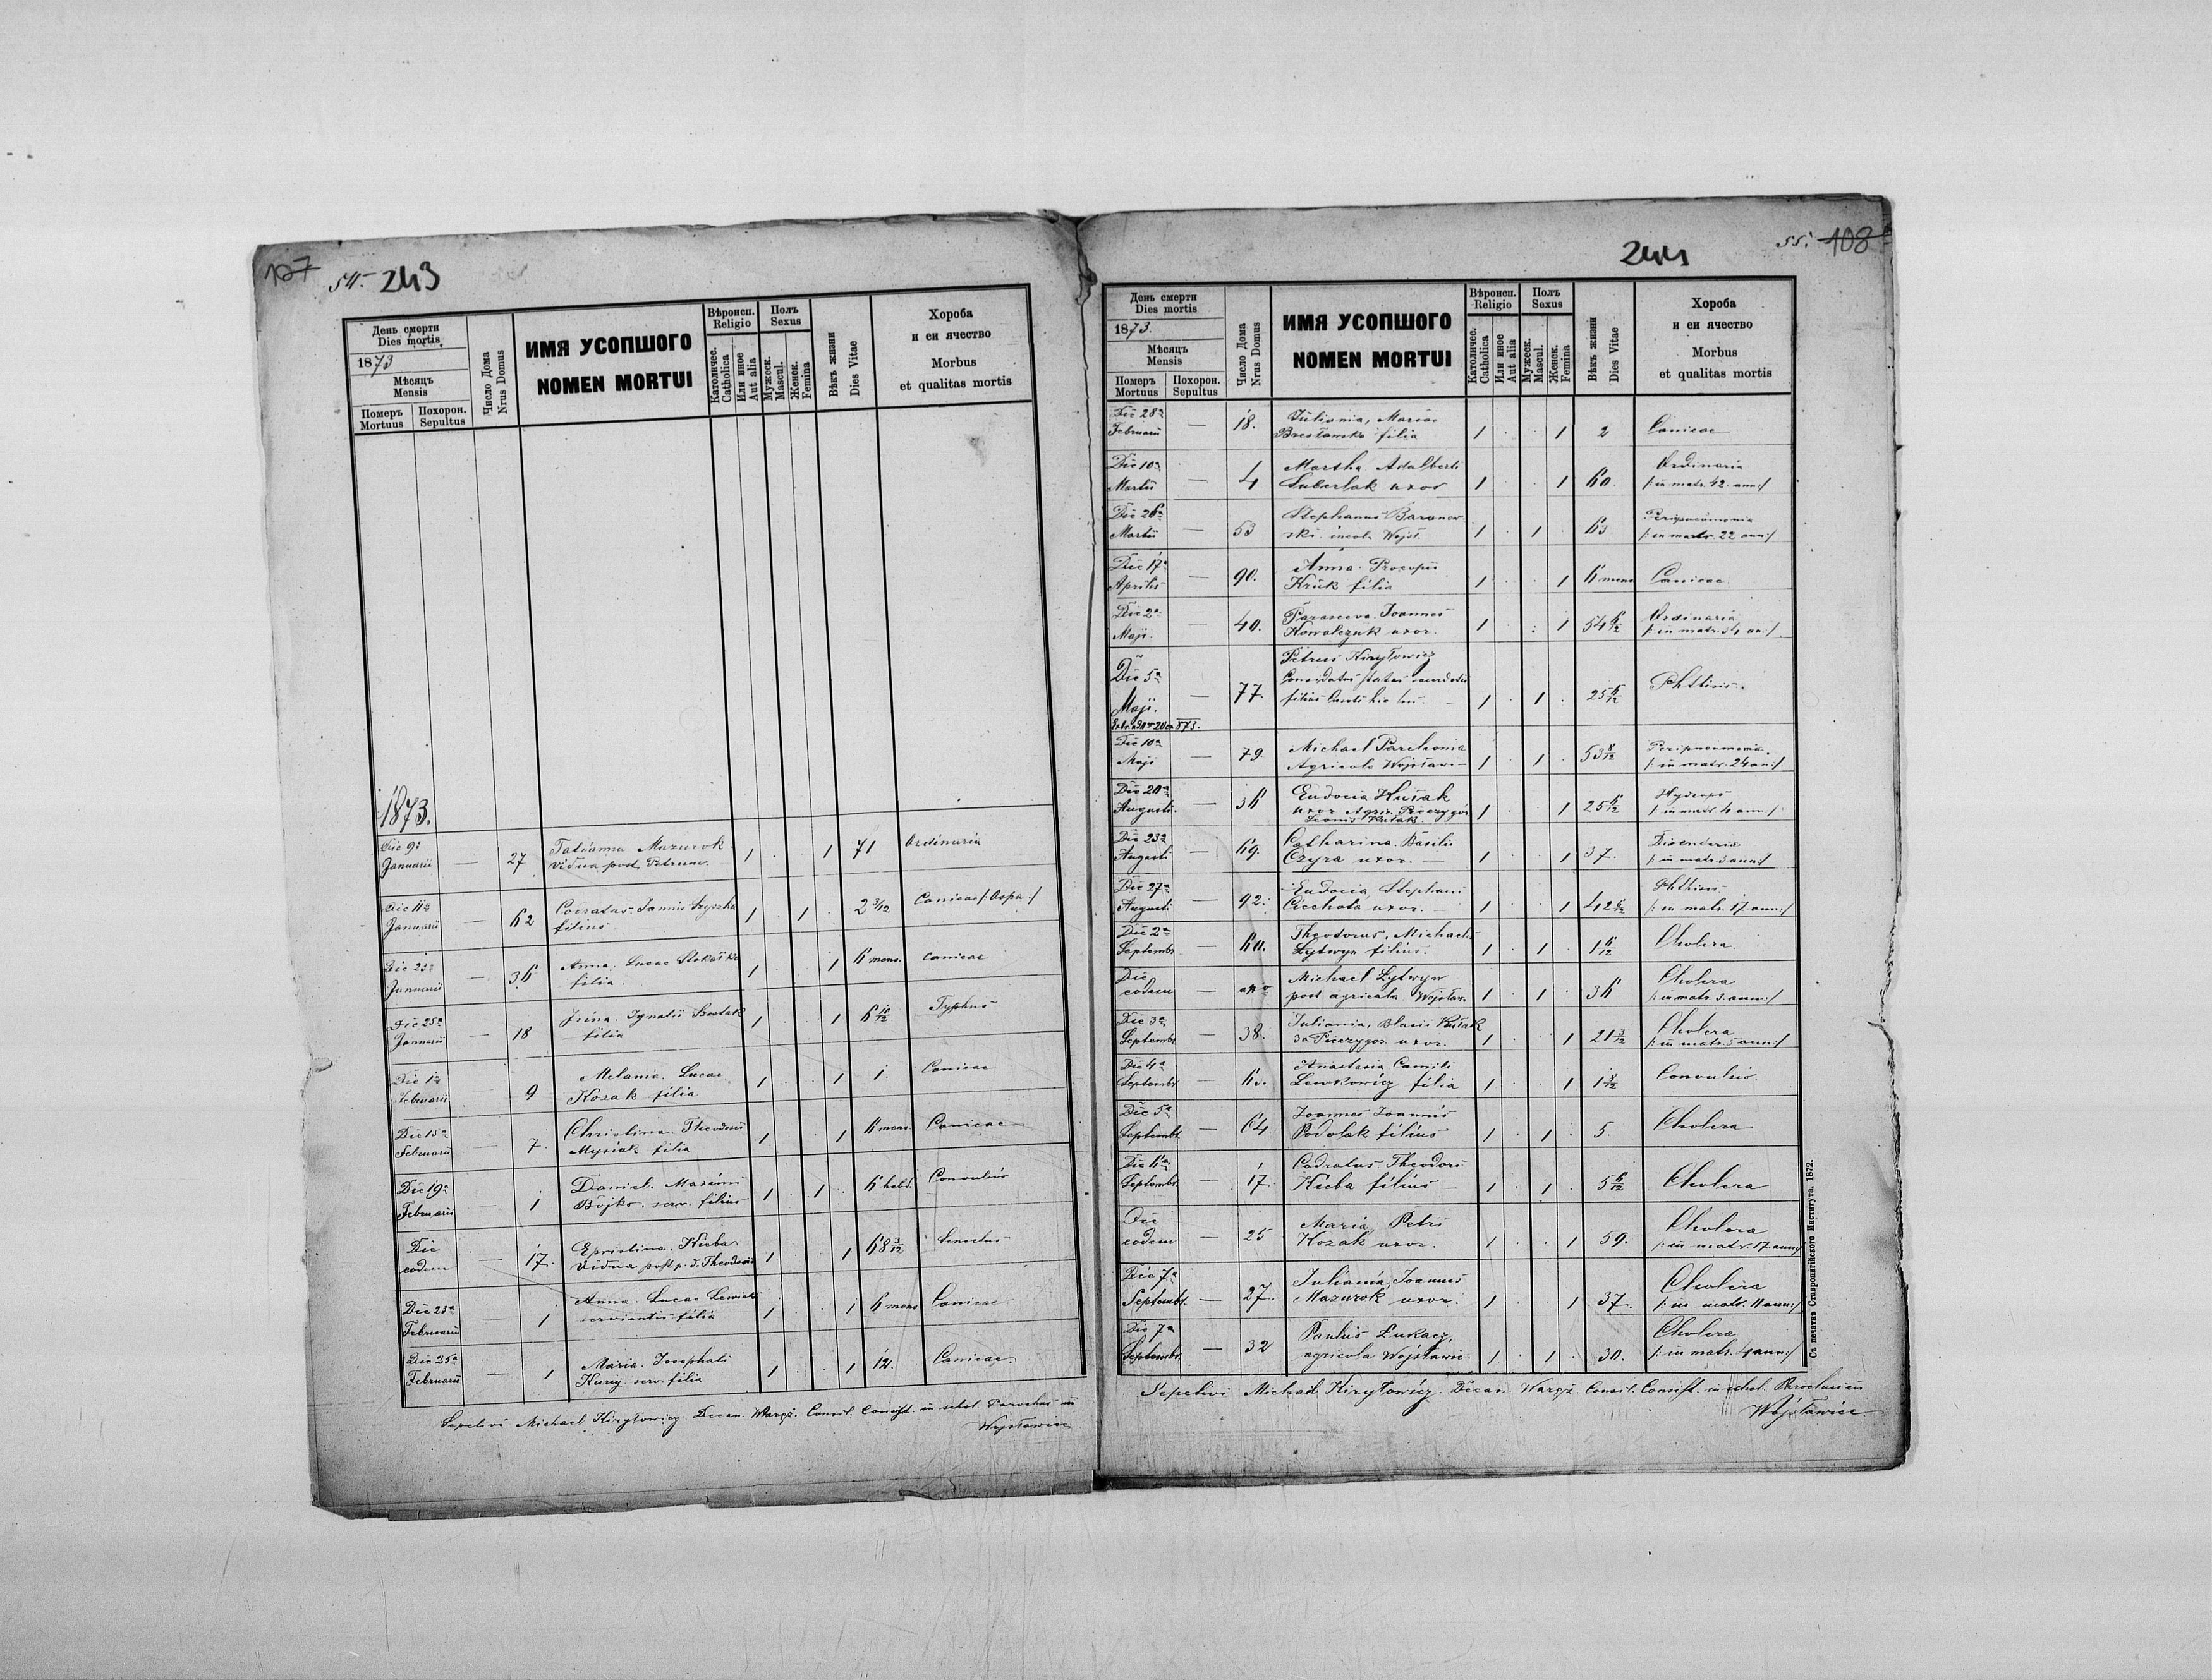 107 54. 243
День смерти
Dies mortis
1873
Мѣсяцъ
Mensis
Померъ Mortuus
Похорон. Sepultus
Число Дома
Nrus Domus
ИМЯ УСОПШОГО
NOMEN MORTUI
Вѣроисп.
Religio
Католичес.
Catholica
Или иное
Aut alia
Полъ
Sexus
Мужеск.
Mascul.
Женск.
Femina
Вѣкъ жизни
Dies Vitae
Хороба
и еи ячество
Morbus
et qualitas mortis
1873.
Die 9a Januarii — 27 Tatianna Mazurok 1 . . 1 71 Ordinaria
vidua post Petrum.
Die 11a Januarii — 62 Joannis 1 . 1 . 2 3/12 Canicae /: Ospa :/
filius
Die 23a Januarii — 36 Anna Lucae 1 . . 1 6 mens. Canicae
filia.
Die 25a Januarii — 18 Irina Ignatii 1 . . 1 6 10/12 Typhus
filia
Die 1a Februarii 9 Melania Lucae 1 . . 1 1. Canicae
Kozak filia
Die 15a Februarii 7 Christina Theodori 1 . . 1 6 mens. Canicae
Mysiak filia
Die 19a Februarii 1 Daniel Maximi 1 . 1 . 6 hebd. Convulsio
Bojko serv. filius
Die eodem — 17. Kieba 1 . . 1 68 3/12 Senectus
Vidua post p. d. Theodorum
Die 23a Februarii — 1 Anna Lucae 1 . . 1 6 mens Canicae
servientis filia
Die 25a Februarii — 1 Maria Josephati 1 . . 1 12. Canicae.
Kuriy serv. filia
Sepelivi Michael Kiryłowicz Decan. Waręż. Consil. Consist. in schol. Parochus in
Wojsławice
244 55. 108
День смерти
Dies mortis
1873.
Мѣсяцъ
Mensis
Померъ Mortuus
Похорон. Sepultus
Число Дома
Nrus Domus
ИМЯ УСОПШОГО
NOMEN MORTUI
Вѣроисп.
Religio
Католичес.
Catholica
Или иное
Aut alia
Полъ
Sexus
Мужеск.
Mascul.
Женск.
Femina
Вѣкъ жизни
Dies Vitae
Хороба
и еи ячество
Morbus
et qualitas mortis
Die 28a Februarii — 18. Juliania, Mariae 1 . . 1 2 Canicae
filia
Die 10a Martii — 4 Martha Adalberti 1 . . 1 60. Ordinaria
Luberlak uxor /: in matr. 42. ann :/
Die 26a Martii — 53 Stephanus Baranow- 1 . 1 . 63 Peripneumonia
ski incola Wojsł. /: in matr. 22 ann :/
Die 17a Aprilis — 90. Anna Procopii 1 . . 1 6 mens Canicae
Kruk filia
Die 2a Maji. — 40. Parasceva Joannis 1 . : 1 54 6/12 Ordinaria
Kowalczuk uxor. /: in matr. 34 an :/
Petrus Kiryłowicz
Die 5a Maji. — 77. 1 . 1 . 25 6/12 Phthisis.
filius
Die 10a Maji — 79. Michael Parchonia 1 . 1 . 53 8/12 Peripneumonia.
Agricola Wojsławi- /: in matr. 24 an :/
Die 20a Augusti. — 36 Eudocia Husak 1 . . 1 25 6/12 Hydrops
uxor Agric. /: in matr 4 ann :/
Die 23a Augusti — 69. Catharina Basilii 1 . . 1 37. Disenteria
Czyra uxor. — /: in matr. 3 ann :/
Die 27a Augusti — 92. Eudocia Stephani 1 . . 1 42 6/12 Phthisis
Ciechota uxor. — /: in matr. 17 ann :/
Die 2a Septembr. — 60. Theodorus, Michaelis 1 . 1 . 1 6/12 Cholera
Lytwyn filius.
Die eodem — Michael Lytwyn 1 . 1 . 36 Cholera
post agricola Wojsław. /: in matr. 3. ann :/
Die 3a Septembr. — 38. Juliania, Blasii Husak 1 . . 1 21 3/12 Cholera
uxor. /: in matr. 5 ann :/
Die 4a Septembr. — 63. Anastasia Camili 1 . . 1 1 8/12 Convulsio.
Lewkowicz filia
Die 5a Septembr. — 64 Joannes Joannis 1 . 1 . 5. Cholera
Podolak filius
Die 6a Septembr. — 17 Codratus Theodori 1 . 1 . 5 6/12 Cholera
Kieba filius —
Die eodem — 25 Maria Petri 1 . . 1 59. Cholera
Kozak uxor. /: in matr. 17. ann :/
Die 7a Septembr. — 27. Juliania Joannis 1 . . 1 37 Cholera
Mazurok uxor. /: in matr. 11 ann :/
Die 7a Septembr. — 32 Paulus Łukacz, 1 . 1 . 30. Cholera
agricola Wojsławic. /: in matr. 4 ann :/
Sepelivi Michael Kiryłowicz. Decan. Waręż. Consil. Consist. in schol. Parochus in
Wojsławice
Съ печатнѣ Ставропигійского Института, 1872.